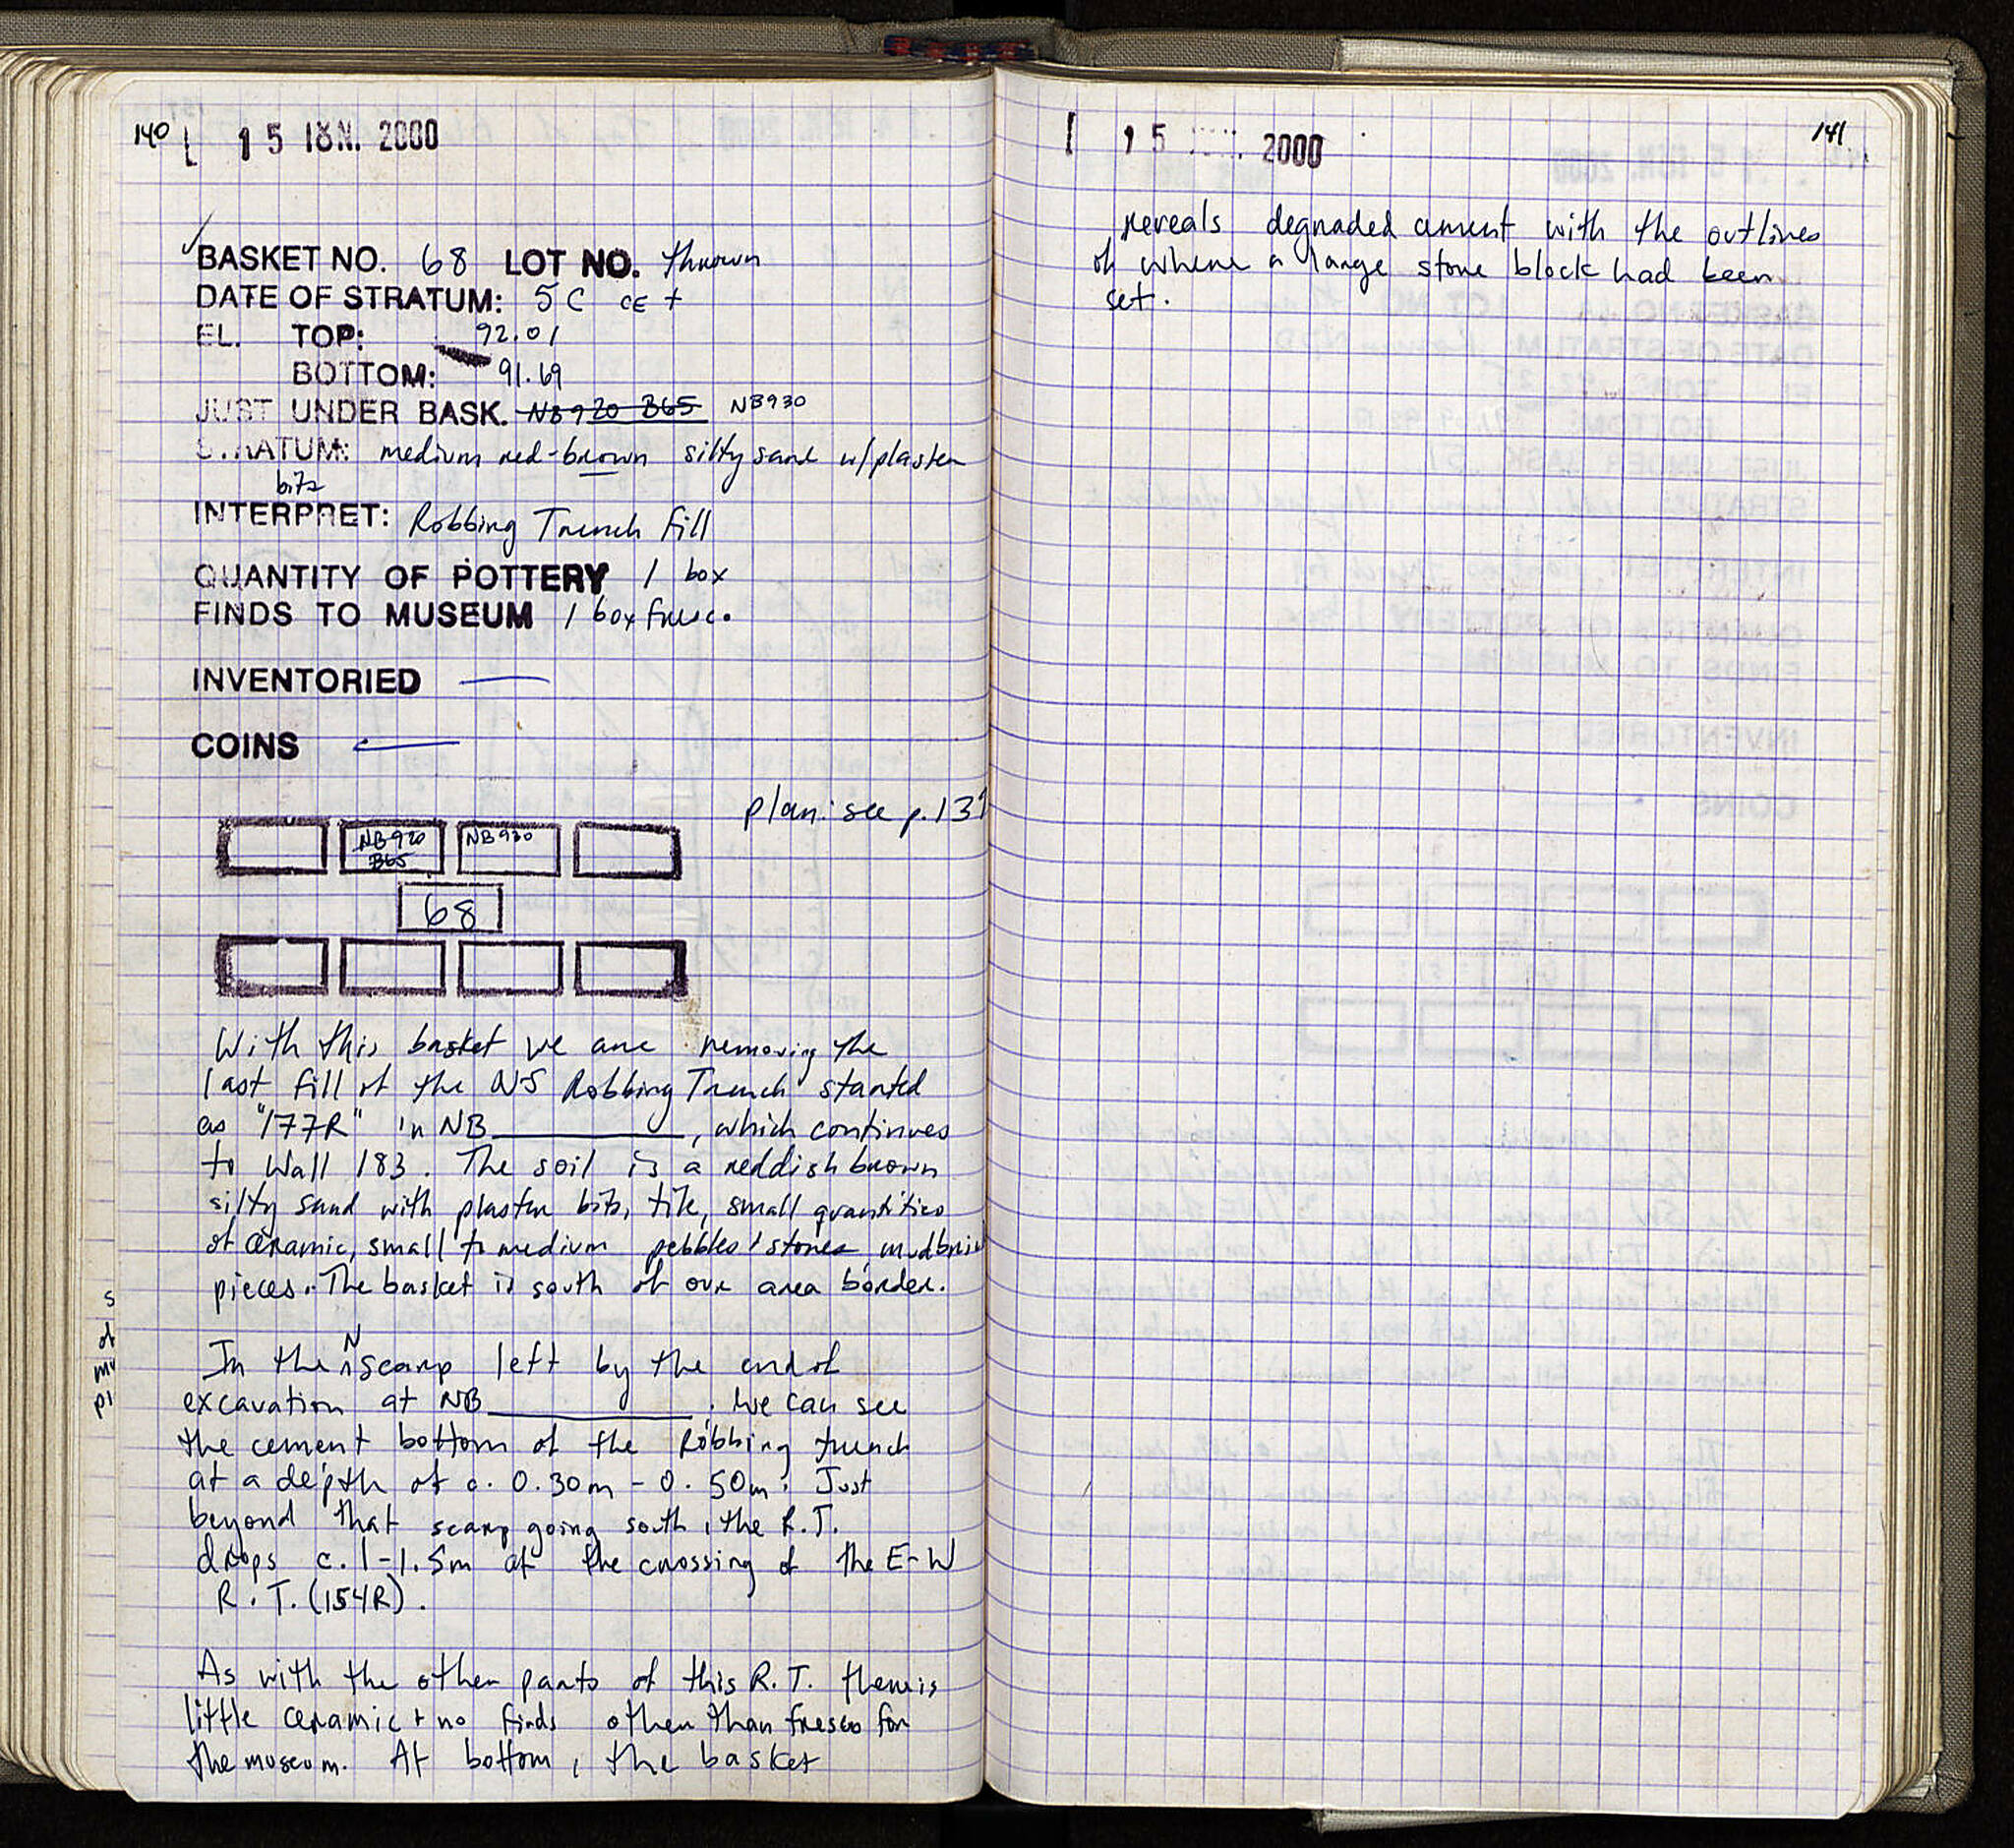 140
15 ΙΟΥΝ. 2000
BASKET NO. 68 LOT NO. thrown
DATE OF STRATUM: 5 C CE +
EL. TOP: 92.01
BOTTOM: 91.69
JUST UNDER BASK. NB920 B65 NB930
STRATUM: medium red-brown silty sand w/plaster
bits
INTERPRET: Robbing Trench fill
QUANTITY OF POTTERY 1 box
FINDS TO MUSEUM 1 box fresc.
INVENTORIED —
COINS —
plan: see p.137
NB920 B65
NB930
68
With this basket we are removing the
last fill of the NS Robbing Trench started
as "177R" in NB__________, which continues
to Wall 183. The soil is a reddish brown
silty sand with plaster bits, tile, small quantities
of ceramic, small to medium pebbles + stones mudbrick
pieces. The basket is south of our area border.
s
of
mu
pi
In the N scarp left by the end of
excavation at NB__________, we can see
the cement bottom of the Robbing trench
at a depth of c. 0.30m - 0.50m. Just
beyond that scarp going south, the R.T.
drops c. 1-1.5m at the crossing of the E-W
R.T. (154R).
As with the other parts of this R.T. there is
little ceramic + no finds other than fresco for
the museum. At bottom, the basket
141
15 2000
reveals degraded cement with the outlines
of where a large stone block had been
set.